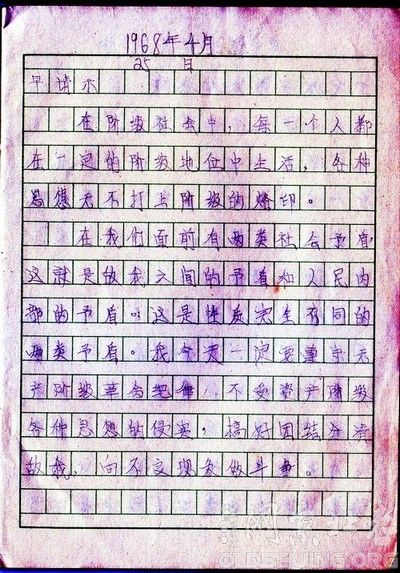 1968年4月
25 日
早请示
在阶级社会中，每一个人都
在一定的阶级地位中生活，各种
思想无不打上阶级的烙印。
在我们面前有两类社会矛盾
这就是敌我之间的矛盾和人民内
部的矛盾。这是性质完全不同的
两类矛盾。我今天一定要掌 无
产阶级革命 ，不受资产阶级
各种思想的侵害，搞好团结分清
敌我，向不良现象做斗争。
OLDBEIJING.ORG